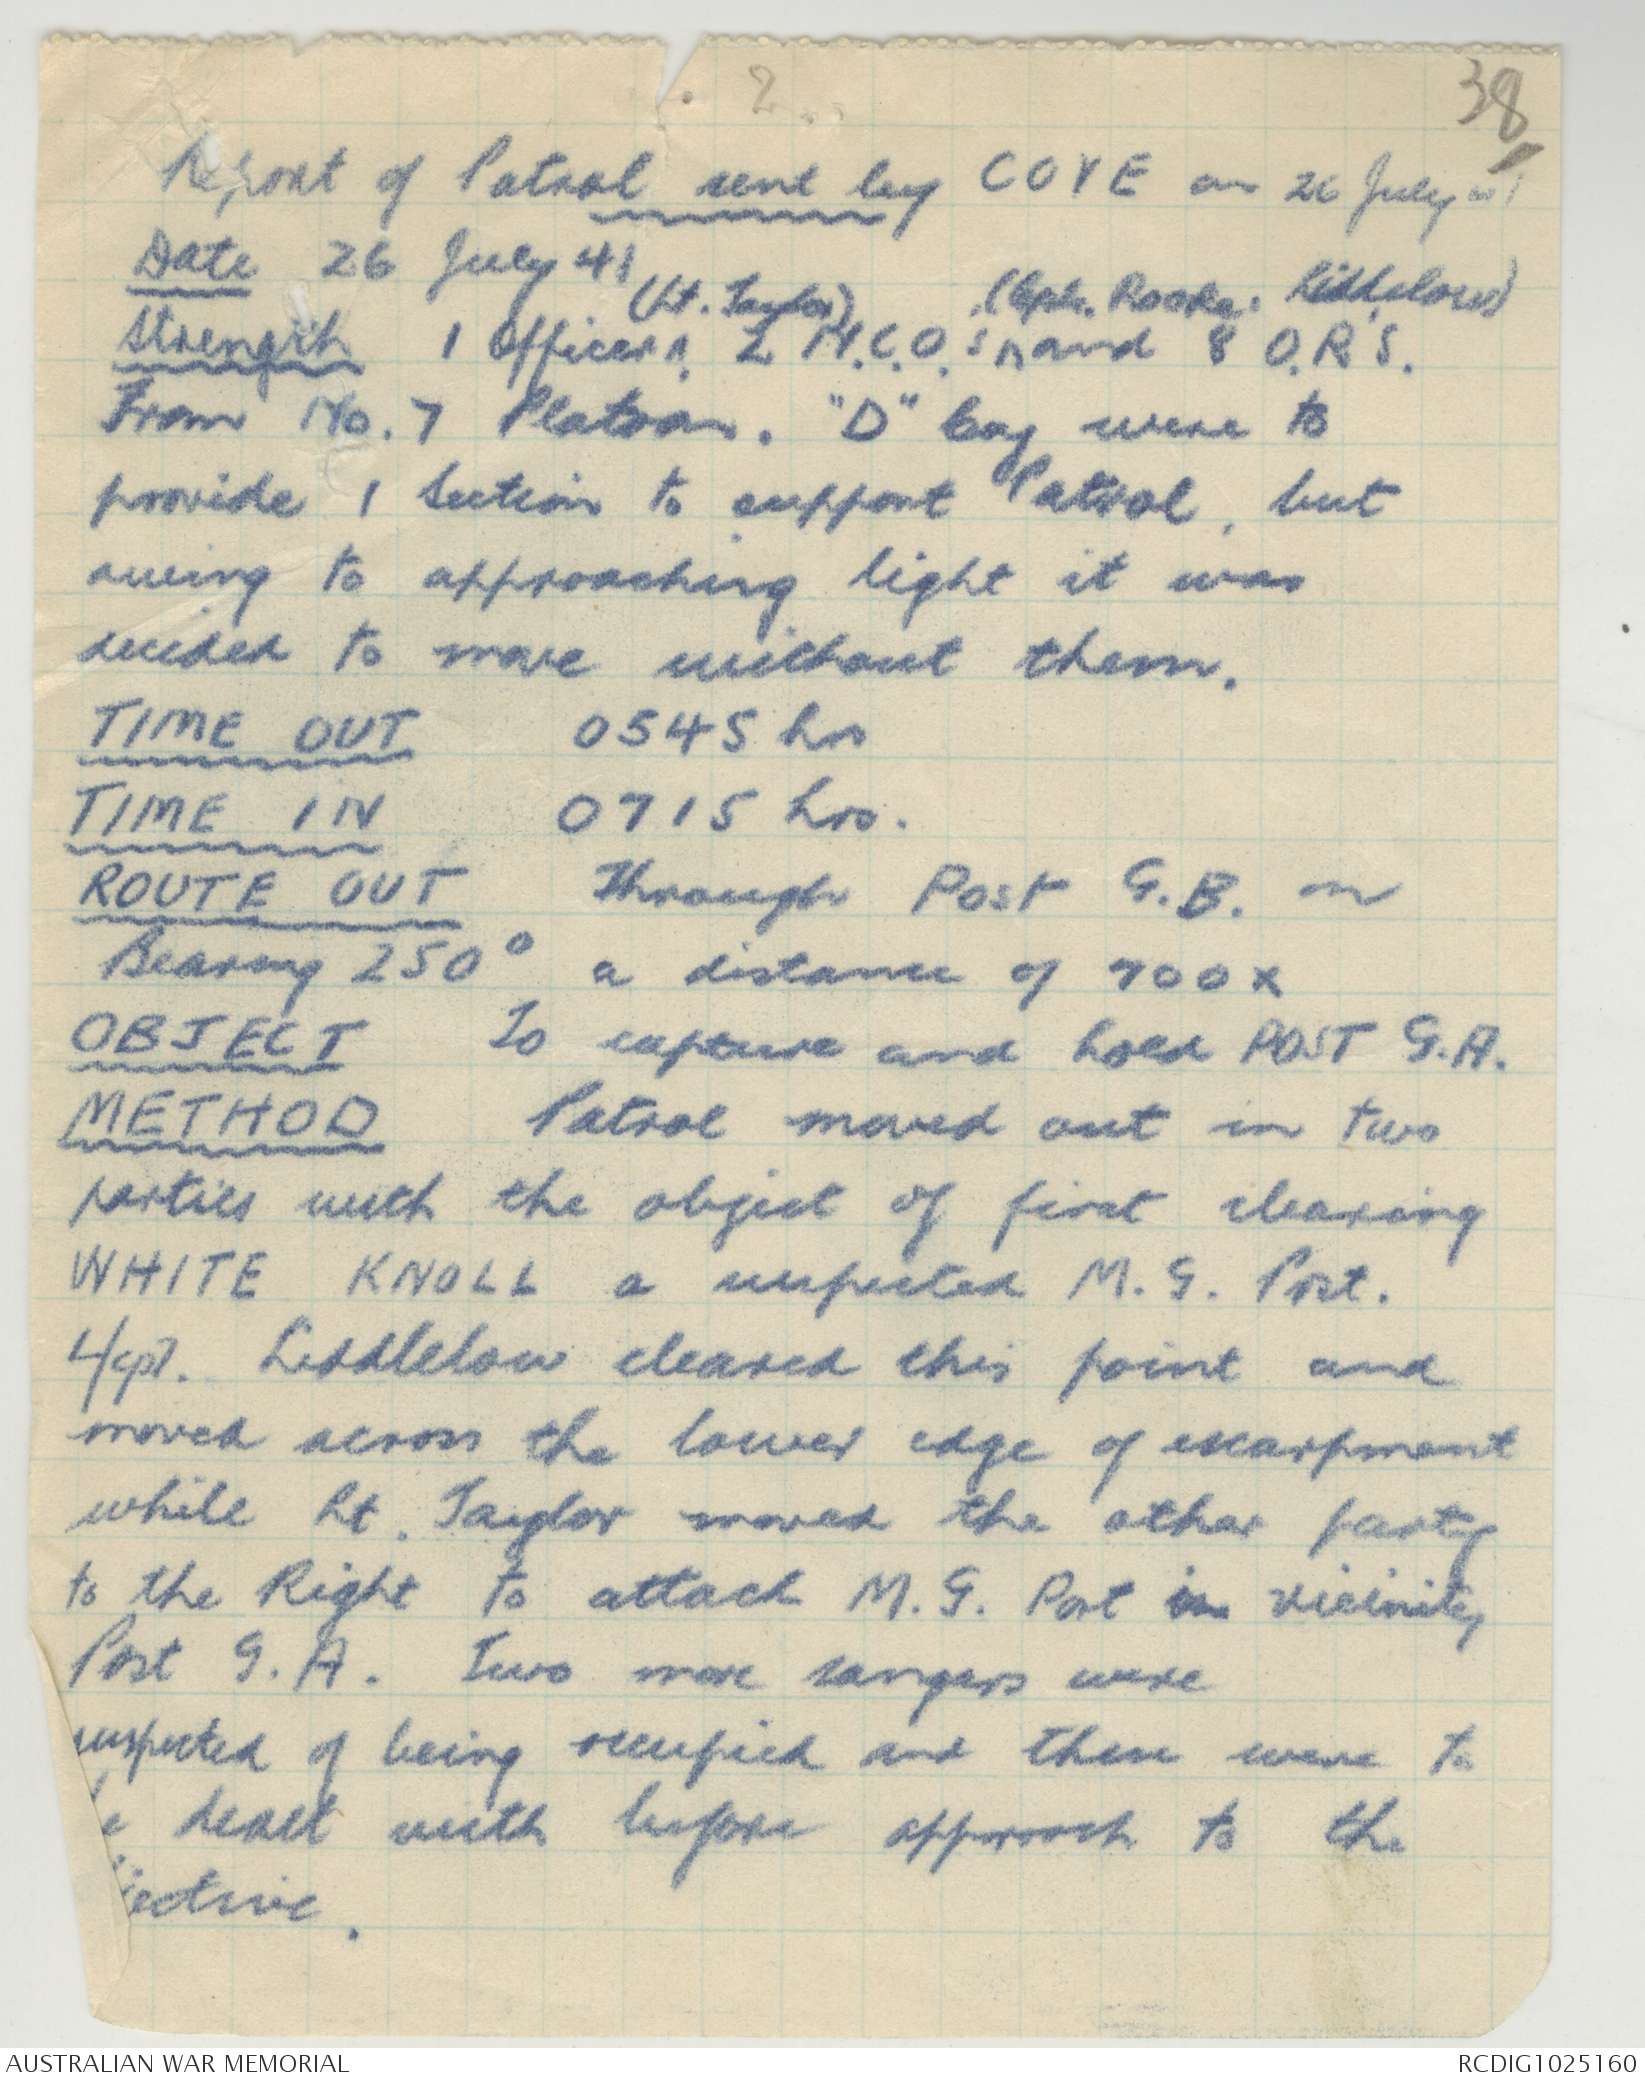 2
38
Report of Patrol sent by COVE on 26 July 41
Date 26 July 41
(Lt. Taylor) (Cpls. Rooke. Liddelow)
Strength 1 Officer, 2 N.C.O's and 8 O.R.'S.
From No. 7 Platoon. "D" Coy were to
provide 1 Section to support Patrol, but
owing to approaching light it was
decided to move without them.
TIME OUT 0545 hrs
TIME IN 0715 hrs.
ROUTE OUT Through Post G.B. on
Bearing 250° a distance of 700x
OBJECT To capture and hold POST G.A.
METHOD Patrol moved out in two
parties with the object of first clearing
WHITE KNOLL a suspected M.G. Post.
L/cpl. Liddlelow cleared this point and
moved across the lower edge of escarpment
while Lt. Taylor moved the other party
to the Right to attack M.G. Post in vicinity
Post G.A. Two more sangers were
suspected of being occupied and these were to
be dealt with before approach to the
jective.
AUSTRALIAN WAR MEMORIAL
RCDIG1025160